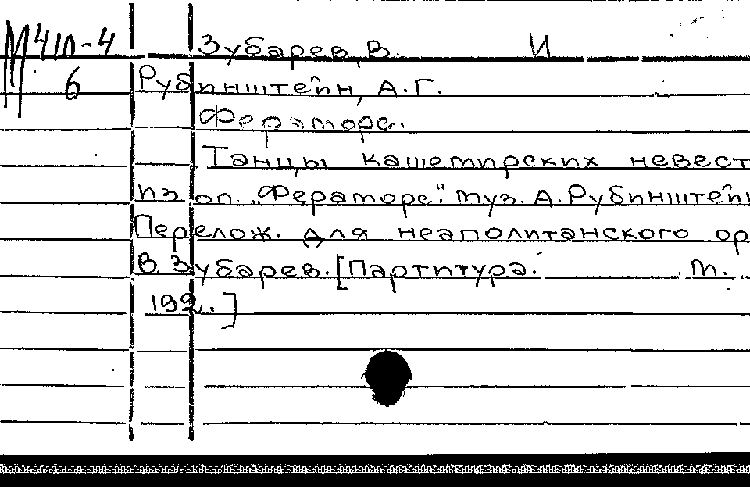 М410-4 Зубарев, В. И
6 Рубинштейн, А.Г.
Фераморс.
Танцы кашемирских невест
из оп. „Фераморс". Муз. А. Рубинштейн
Перелож. для неаполитанского ор
В. Зубарев. [Партитура. М.
192..]